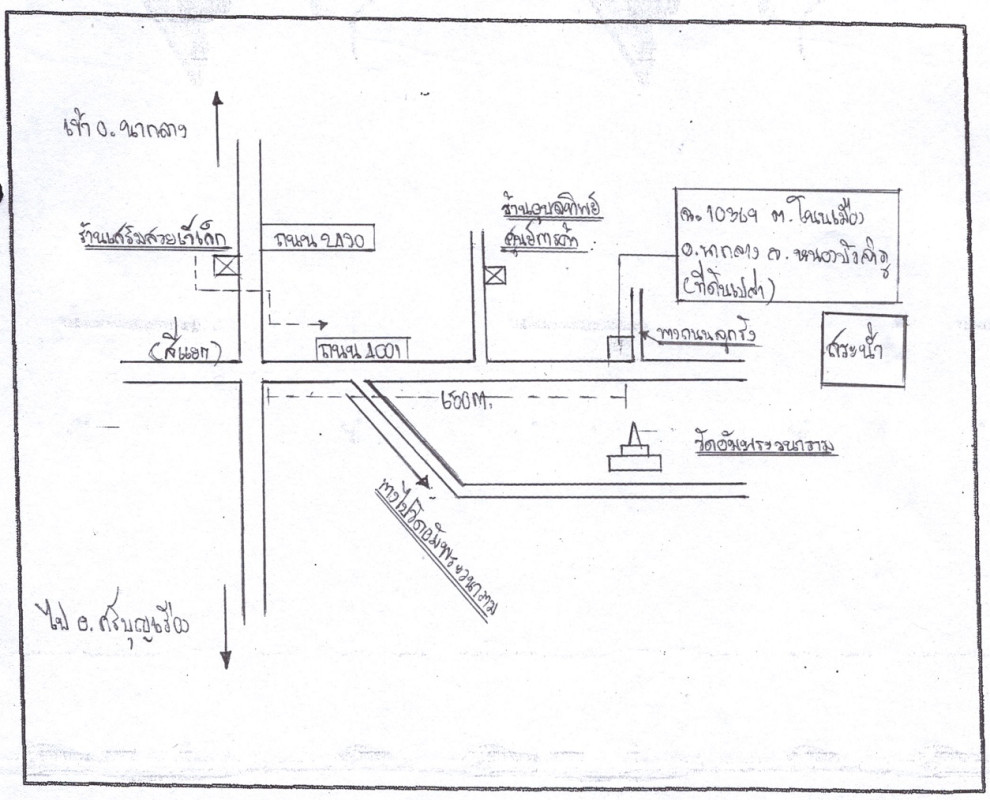 เข้า อ. นากลาง
ร้านเสริมสวยเจ๊เล็ก
ร้านอุบลทิพย์
ฉ. 10369 ต. โนนเมือง
อ. นากลาง จ. หนองบัวลำภู
(ที่ดินเปล่า)
(สี่แยก)
ทางถนนลูกรัง
สระน้ำ
650 ม.
วัดอัมพระวนาราม
ทางไปวัดอัมพระวนาราม
ไป อ. ศรีบุญเรือง